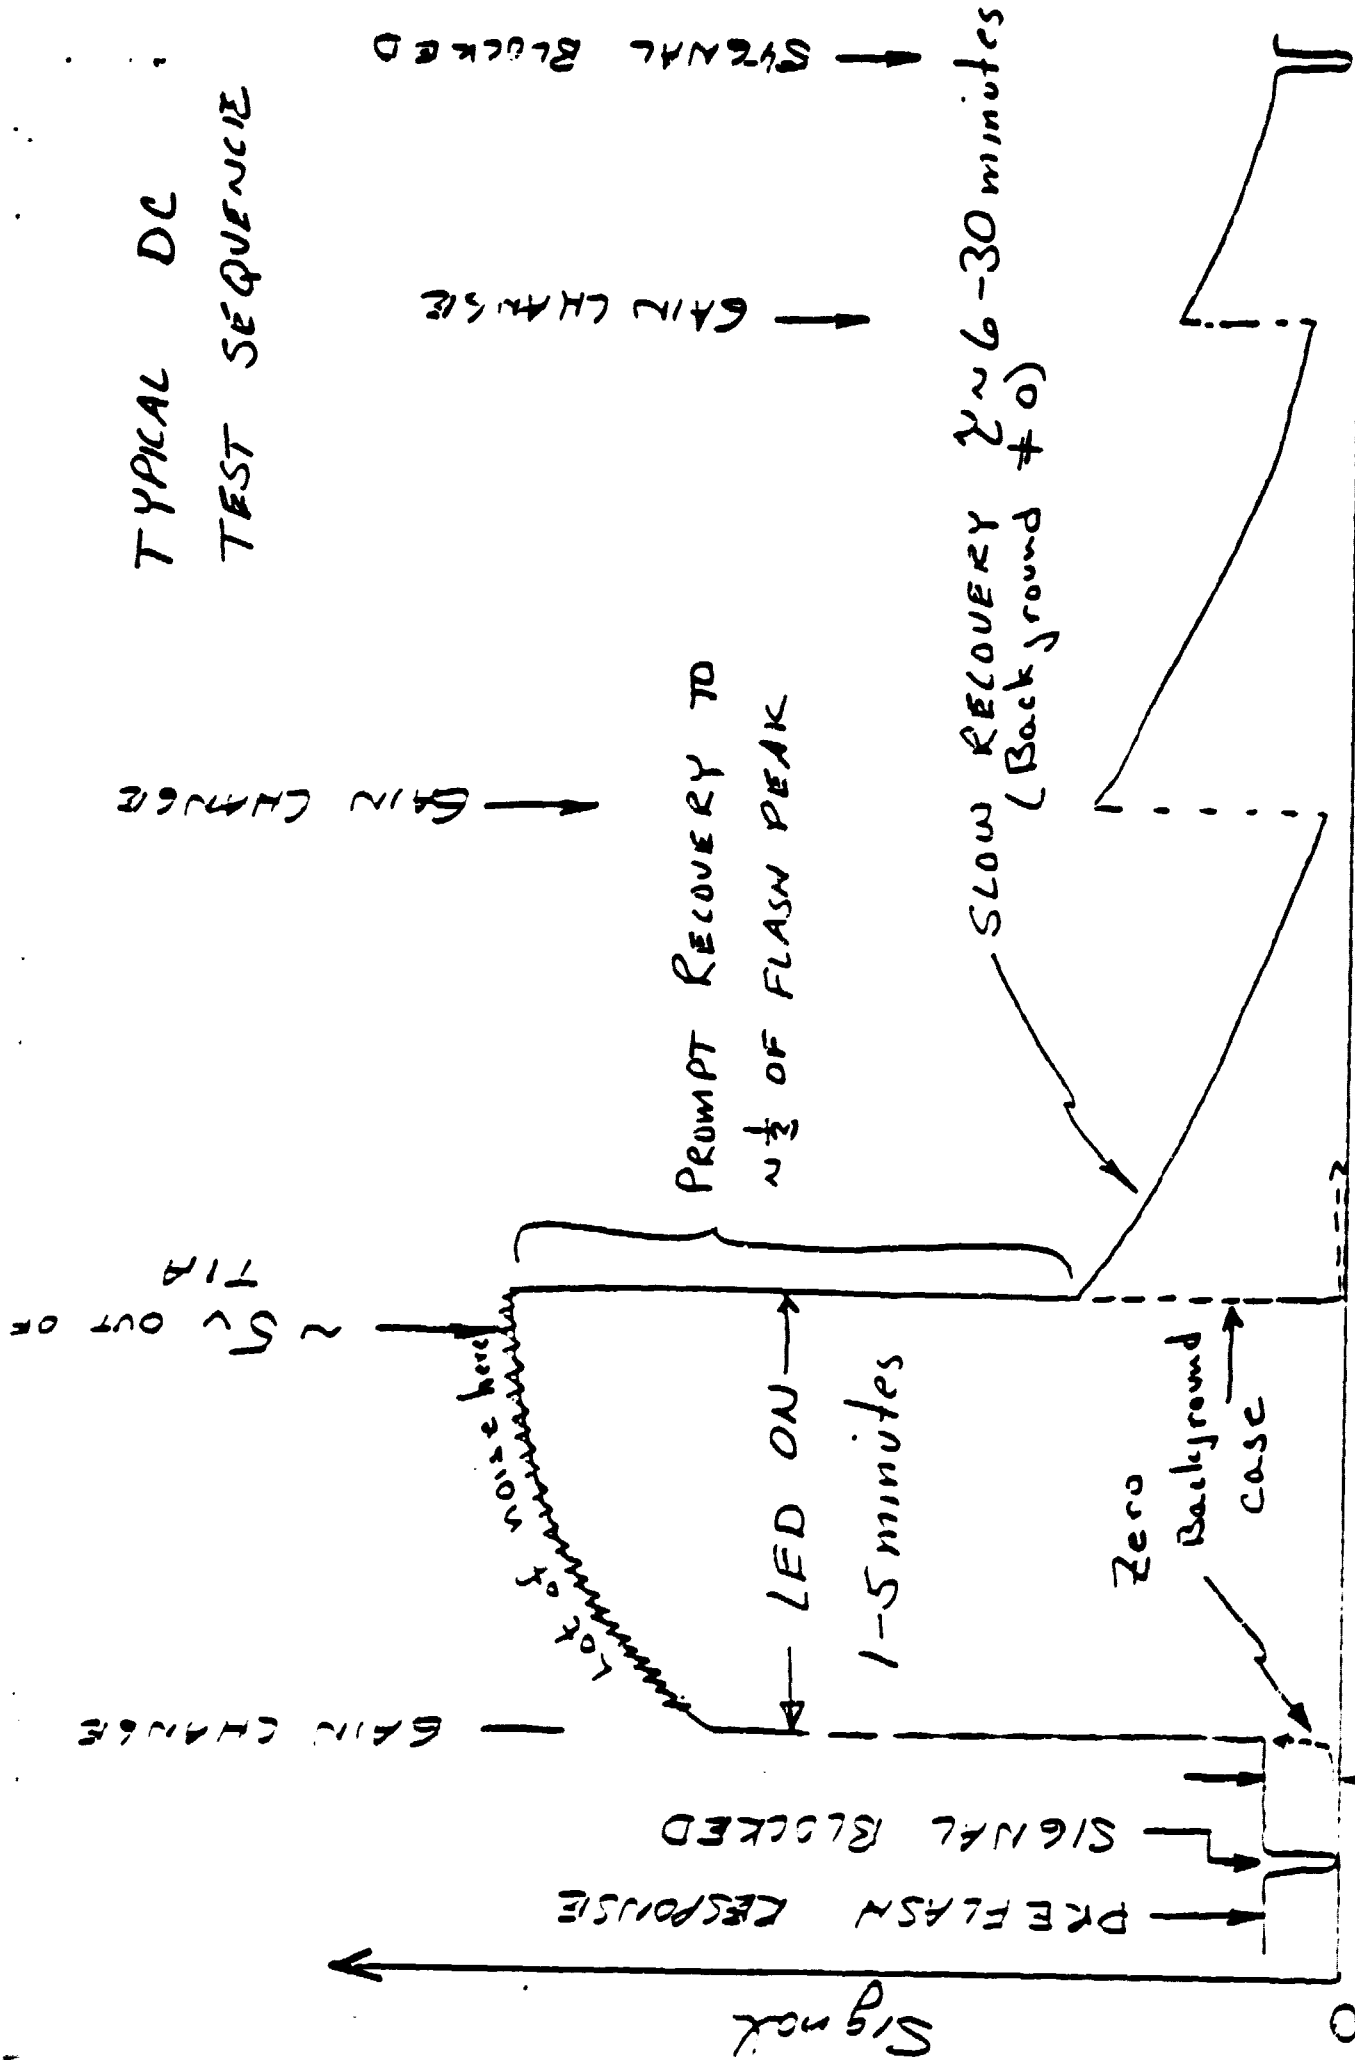 TYPICAL DC
TEST SEQUENCE
SIGNAL BLOCKED
GAIN CHANGE
GAIN CHANGE
PROMPT RECOVERY TO
~ ½ OF FLASH PEAK
SLOW RECOVERY τ ~ 6-30 minutes
(Background ≠ 0)
~ 5v OUT OF
TIA
Lot of noise here
LED ON
1-5 minutes
Zero
Background
case
GAIN CHANGE
SIGNAL BLOCKED
PREFLASH RESPONSE
Signal
0